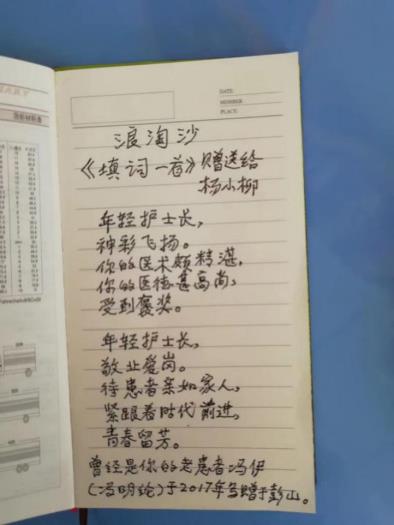 DATE:
NUMBER:
PLACE:
浪淘沙
《填词一首》赠送给
杨小柳
年轻护士长,
神彩飞扬。
你的医术颇精湛,
你的医德甚高尚,
受到褒奖。
年轻护士长,
敬业爱岗。
待患者亲如家人,
紧跟着时代前进,
青春留芳。
曾经是你的老患者冯伊
(冯明纶)于2017年冬赠于彭山。